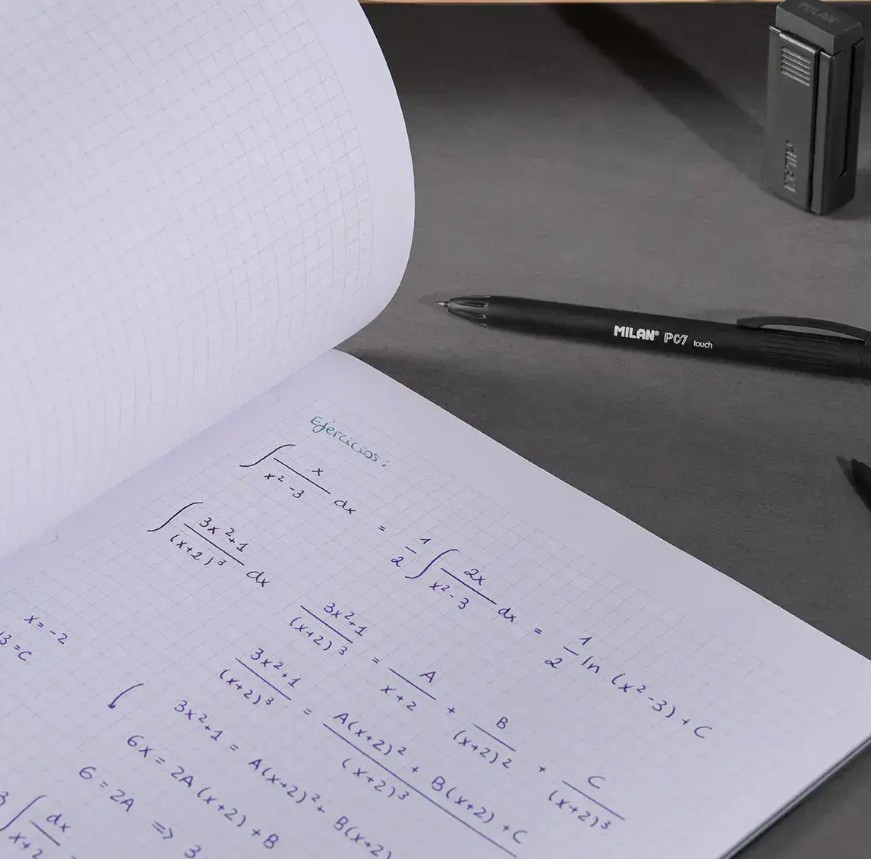 MILAN
MILAN
MILAN® PC7 touch
Ejercicios:
∫ x / (x² - 3) dx = 1/2 ∫ 2x / (x² - 3) dx = 1/2 ln (x² - 3) + C
∫ (3x² + 1) / (x+2)³ dx
(3x² + 1) / (x+2)³ = A / (x+2) + B / (x+2)² + C / (x+2)³
(3x² + 1) / (x+2)³ = (A(x+2)² + B(x+2) + C) / (x+2)³
x = -2
13 = C
3x² + 1 = A(x+2)² + B(x+2)
6x = 2A(x+2) + B
6 = 2A => 3
3 ∫ dx / (x+2) =